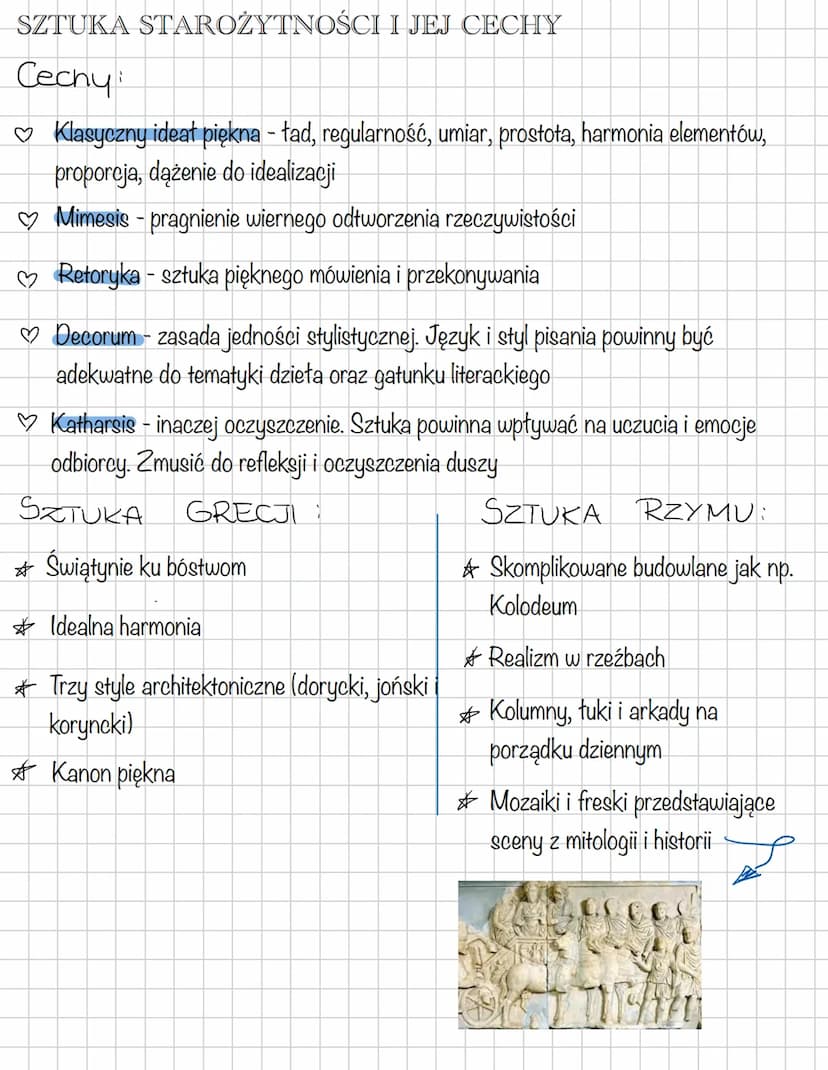 SZTUKA STAROŻYTNOŚCI I JEJ CECHY
Cechy:
Klasyczny ideał piękna - ład, regularność, umiar, prostota, harmonia elementów,
proporcja, dążenie do idealizacji
Mimesis - pragnienie wiernego odtworzenia rzeczywistości
Retoryka - sztuka pięknego mówienia i przekonywania
Decorum - zasada jedności stylistycznej. Język i styl pisania powinny być
adekwatne do tematyki dzieła oraz gatunku literackiego
Katharsis - inaczej oczyszczenie. Sztuka powinna wpływać na uczucia i emocje
odbiorcy. Zmusić do refleksji i oczyszczenia duszy
SZTUKA GRECJI:
Świątynie ku bóstwom
Idealna harmonia
Trzy style architektoniczne (dorycki, joński i
koryncki)
Kanon piękna
SZTUKA RZYMU:
Skomplikowane budowlane jak np.
Kolodeum
Realizm w rzeźbach
Kolumny, łuki i arkady na
porządku dziennym
Mozaiki i freski przedstawiające
sceny z mitologii i historii